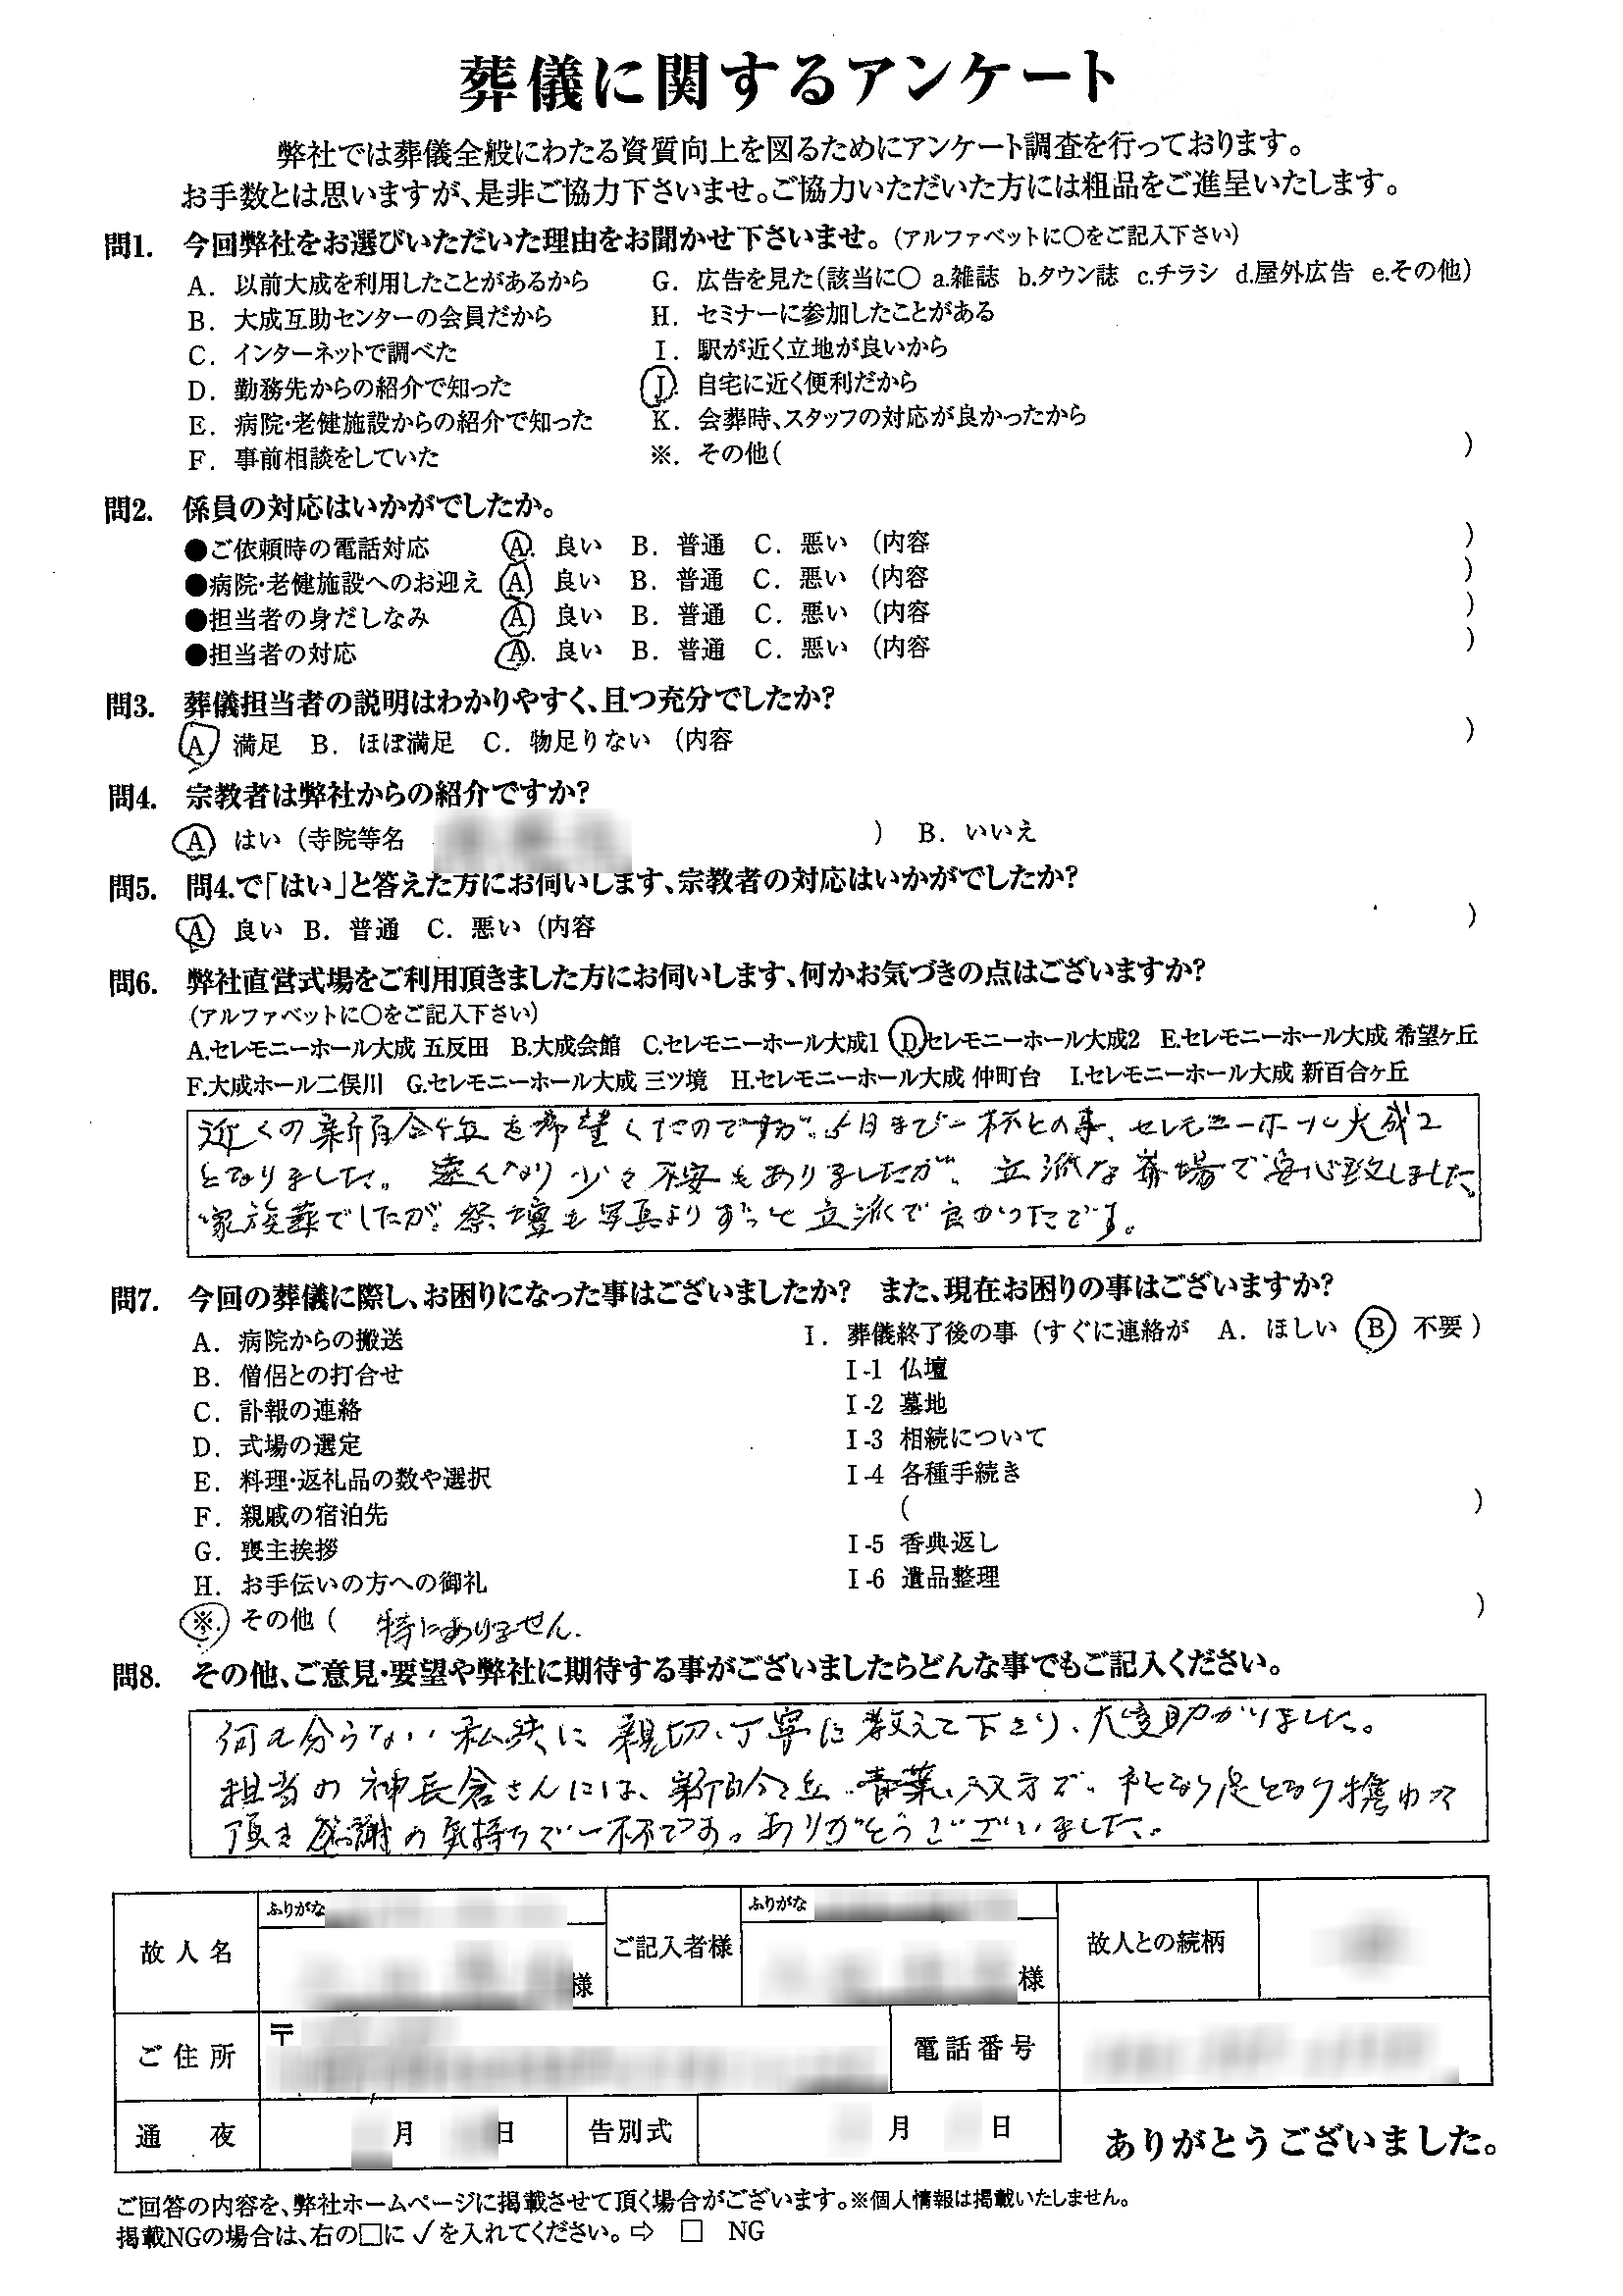 葬儀に関するアンケート
弊社では葬儀全般にわたる資質向上を図るためにアンケート調査を行っております。
お手数とは思いますが、是非ご協力下さいませ。ご協力いただいた方には粗品をご進呈いたします。
問1. 今回弊社をお選びいただいた理由をお聞かせ下さいませ。(アルファベットに○をご記入下さい)
A. 以前大成を利用したことがあるから G. 広告を見た(該当に○ a.雑誌 b.タウン誌 c.チラシ d.屋外広告 e.その他)
B. 大成互助センターの会員だから H. セミナーに参加したことがある
C. インターネットで調べた I. 駅が近く立地が良いから
D. 勤務先からの紹介で知った J. 自宅に近く便利だから
E. 病院・老健施設からの紹介で知った K. 会葬時、スタッフの対応が良かったから
F. 事前相談をしていた ※. その他( )
問2. 係員の対応はいかがでしたか。
●ご依頼時の電話対応 A. 良い B. 普通 C. 悪い (内容 )
●病院・老健施設へのお迎え A. 良い B. 普通 C. 悪い (内容 )
●担当者の身だしなみ A. 良い B. 普通 C. 悪い (内容 )
●担当者の対応 A. 良い B. 普通 C. 悪い (内容 )
問3. 葬儀担当者の説明はわかりやすく、且つ充分でしたか?
A. 満足 B. ほぼ満足 C. 物足りない (内容 )
問4. 宗教者は弊社からの紹介ですか?
A はい (寺院等名 ) B. いいえ
問5. 問4.で「はい」と答えた方にお伺いします、宗教者の対応はいかがでしたか?
A 良い B. 普通 C. 悪い (内容 )
問6. 弊社直営式場をご利用頂きました方にお伺いします、何かお気づきの点はございますか?
(アルファベットに○をご記入下さい)
A.セレモニーホール大成 五反田 B.大成会館 C.セレモニーホール大成1 D.セレモニーホール大成2 E.セレモニーホール大成 希望ヶ丘
F.大成ホール二俣川 G.セレモニーホール大成 三ツ境 H.セレモニーホール大成 仲町台 I.セレモニーホール大成 新百合ヶ丘
近くの新百合ヶ丘を希望してたのですが、5日まで一杯との事、セレモニーホール大成2
となりました。遠くなり少々不安もありましたが、立派な斎場で安心致しました。
家族葬でしたが、祭壇も写真よりずっと立派で良かったです。
問7. 今回の葬儀に際し、お困りになった事はございましたか? また、現在お困りの事はございますか?
A. 病院からの搬送 I. 葬儀終了後の事 (すぐに連絡が A. ほしい B 不要)
B. 僧侶との打合せ I-1 仏壇
C. 訃報の連絡 I-2 墓地
D. 式場の選定 I-3 相続について
E. 料理・返礼品の数や選択 I-4 各種手続き
F. 親戚の宿泊先 ( )
G. 喪主挨拶 I-5 香典返し
H. お手伝いの方への御礼 I-6 遺品整理
※. その他 ( 特にありません. )
問8. その他、ご意見・要望や弊社に期待する事がございましたらどんな事でもご記入ください。
何も分らない私共に親切、丁寧に教えて下さり、大変助かりました。
担当の神長倉さんには、新百合ヶ丘、青葉、双方で、手となり足となり携わって
頂き感謝の気持ちで一杯です。ありがとうございました。
ふりがな ふりがな
故人名 様 ご記入者様 様 故人との続柄
ご住所 〒 電話番号
通 夜 月 日 告別式 月 日 ありがとうございました。
ご回答の内容を、弊社ホームページに掲載させて頂く場合がございます。※個人情報は掲載いたしません。
掲載NGの場合は、右の□に✓を入れてください。⇨ □ NG